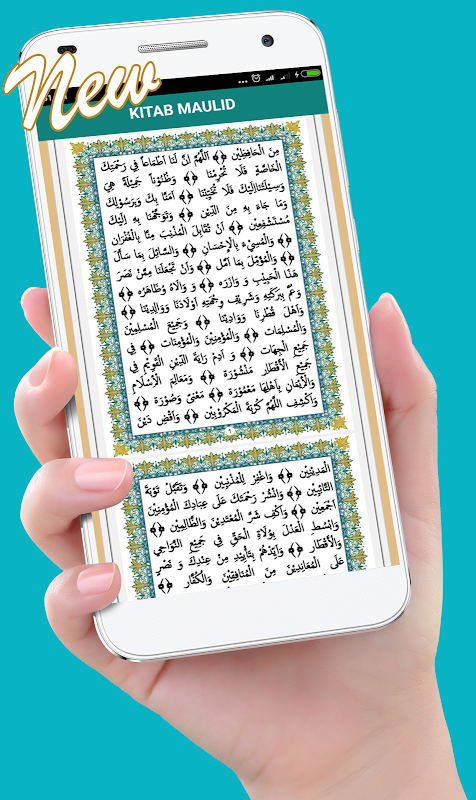 New
KITAB MAULID
مِنَ الْحَافِظِيْنَ ﴿﴾ اَللّٰهُمَّ اِنَّ لَنَا اَطْمَاعًا فِي رَحْمَتِكَ
الْخَاصَّةِ فَلَا تَحْرِمْنَا ﴿﴾ وَظُنُوْنًا جَمِيْلَةً هِيَ
وَسِيْلَتُنَا اِلَيْكَ فَلَا تُخَيِّبْنَا ﴿﴾ اٰمَنَّا بِكَ وَبِرَسُوْلِكَ
وَمَا جَاءَ بِهِ مِنَ الدِّيْنِ ﴿﴾ وَتَوَجَّهْنَا بِهِ اِلَيْكَ
مُسْتَشْفِعِيْنَ ﴿﴾ اَنْ تُقَابِلَ الْمُذْنِبَ مِنَّا بِالْغُفْرَانِ
﴿﴾ وَالْمُسِيْءَ بِالْاِحْسَانِ ﴿﴾ وَالسَّائِلَ بِمَا سَأَلَ
﴿﴾ وَالْمُؤَمِّلَ بِمَا اَمَّلَ ﴿﴾ وَاَنْ تَجْعَلَنَا مِمَّنْ نَصَرَ
هٰذَا الْحَبِيْبَ وَ وَازَرَهُ ﴿﴾ وَ وَالَاهُ وَظَاهَرَهُ ﴿﴾
وَعُمَّ بِبَرَكَتِهِ وَشَرِيْفِ وِجْهَتِهِ اَوْلَادَنَا وَوَالِدِيْنَا ﴿﴾
وَاَهْلَ قُطْرِنَا وَوَادِيْنَا ﴿﴾ وَجَمِيْعَ الْمُسْلِمِيْنَ
وَالْمُسْلِمَاتِ ﴿﴾ وَالْمُؤْمِنِيْنَ وَالْمُؤْمِنَاتِ ﴿﴾ فِي
جَمِيْعِ الْجِهَاتِ ﴿﴾ وَ اَدِمْ رَايَةَ الدِّيْنِ الْقَوِيْمِ فِي
جَمِيْعِ الْاَقْطَارِ مَنْشُوْرَةً ﴿﴾ وَمَعَالِمَ الْاِسْلَامِ
وَالْاِيْمَانِ بِاَهْلِهَا مَعْمُوْرَةً ﴿﴾ مَعْنًى وَصُوْرَةً ﴿﴾
وَاكْشِفِ اللّٰهُمَّ كُرْبَةَ الْمَكْرُوْبِيْنَ ﴿﴾ وَاقْضِ دَيْنَ
1
الْمَدِيْنِيْنَ ﴿﴾ وَاغْفِرْ لِلْمُذْنِبِيْنَ ﴿﴾ وَتَقَبَّلْ تَوْبَةَ
التَّائِبِيْنَ ﴿﴾ وَانْشُرْ رَحْمَتَكَ عَلَى عِبَادِكَ الْمُؤْمِنِيْنَ
اَجْمَعِيْنَ ﴿﴾ وَاكْفِ شَرَّ الْمُعْتَدِيْنَ وَالظَّالِمِيْنَ ﴿﴾
وَابْسُطِ الْعَدْلَ بِوُلَاةِ الْحَقِّ فِي جَمِيْعِ النَّوَاحِي
وَالْاَقْطَارِ ﴿﴾ وَاَيِّدْهُمْ بِتَأْيِيْدٍ مِنْ عِنْدِكَ وَ نَصْرٍ
عَلَى الْمُعَانِدِيْنَ مِنَ الْمُنَافِقِيْنَ وَالْكُفَّارِ ﴿﴾